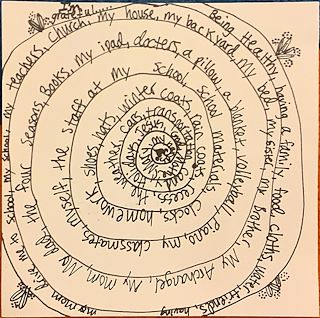 I'm
grateful...
Being Healthy, having a family, food, cloths, water, friends, having
my mom drive me to school, my school, my teachers, church, my house, my backyard, my bed, my
my brother, My Archangel, My mom, My dad, the four seasons, Books, my ipad, docters, a pillow, a blanket, volleyball, Piano, my classmates, myself, the staff at my school, school materials, clocks, homework, shoes, hats, winter coats, rain coats, recess, the weather, cars, transportation
holy days, Jesus